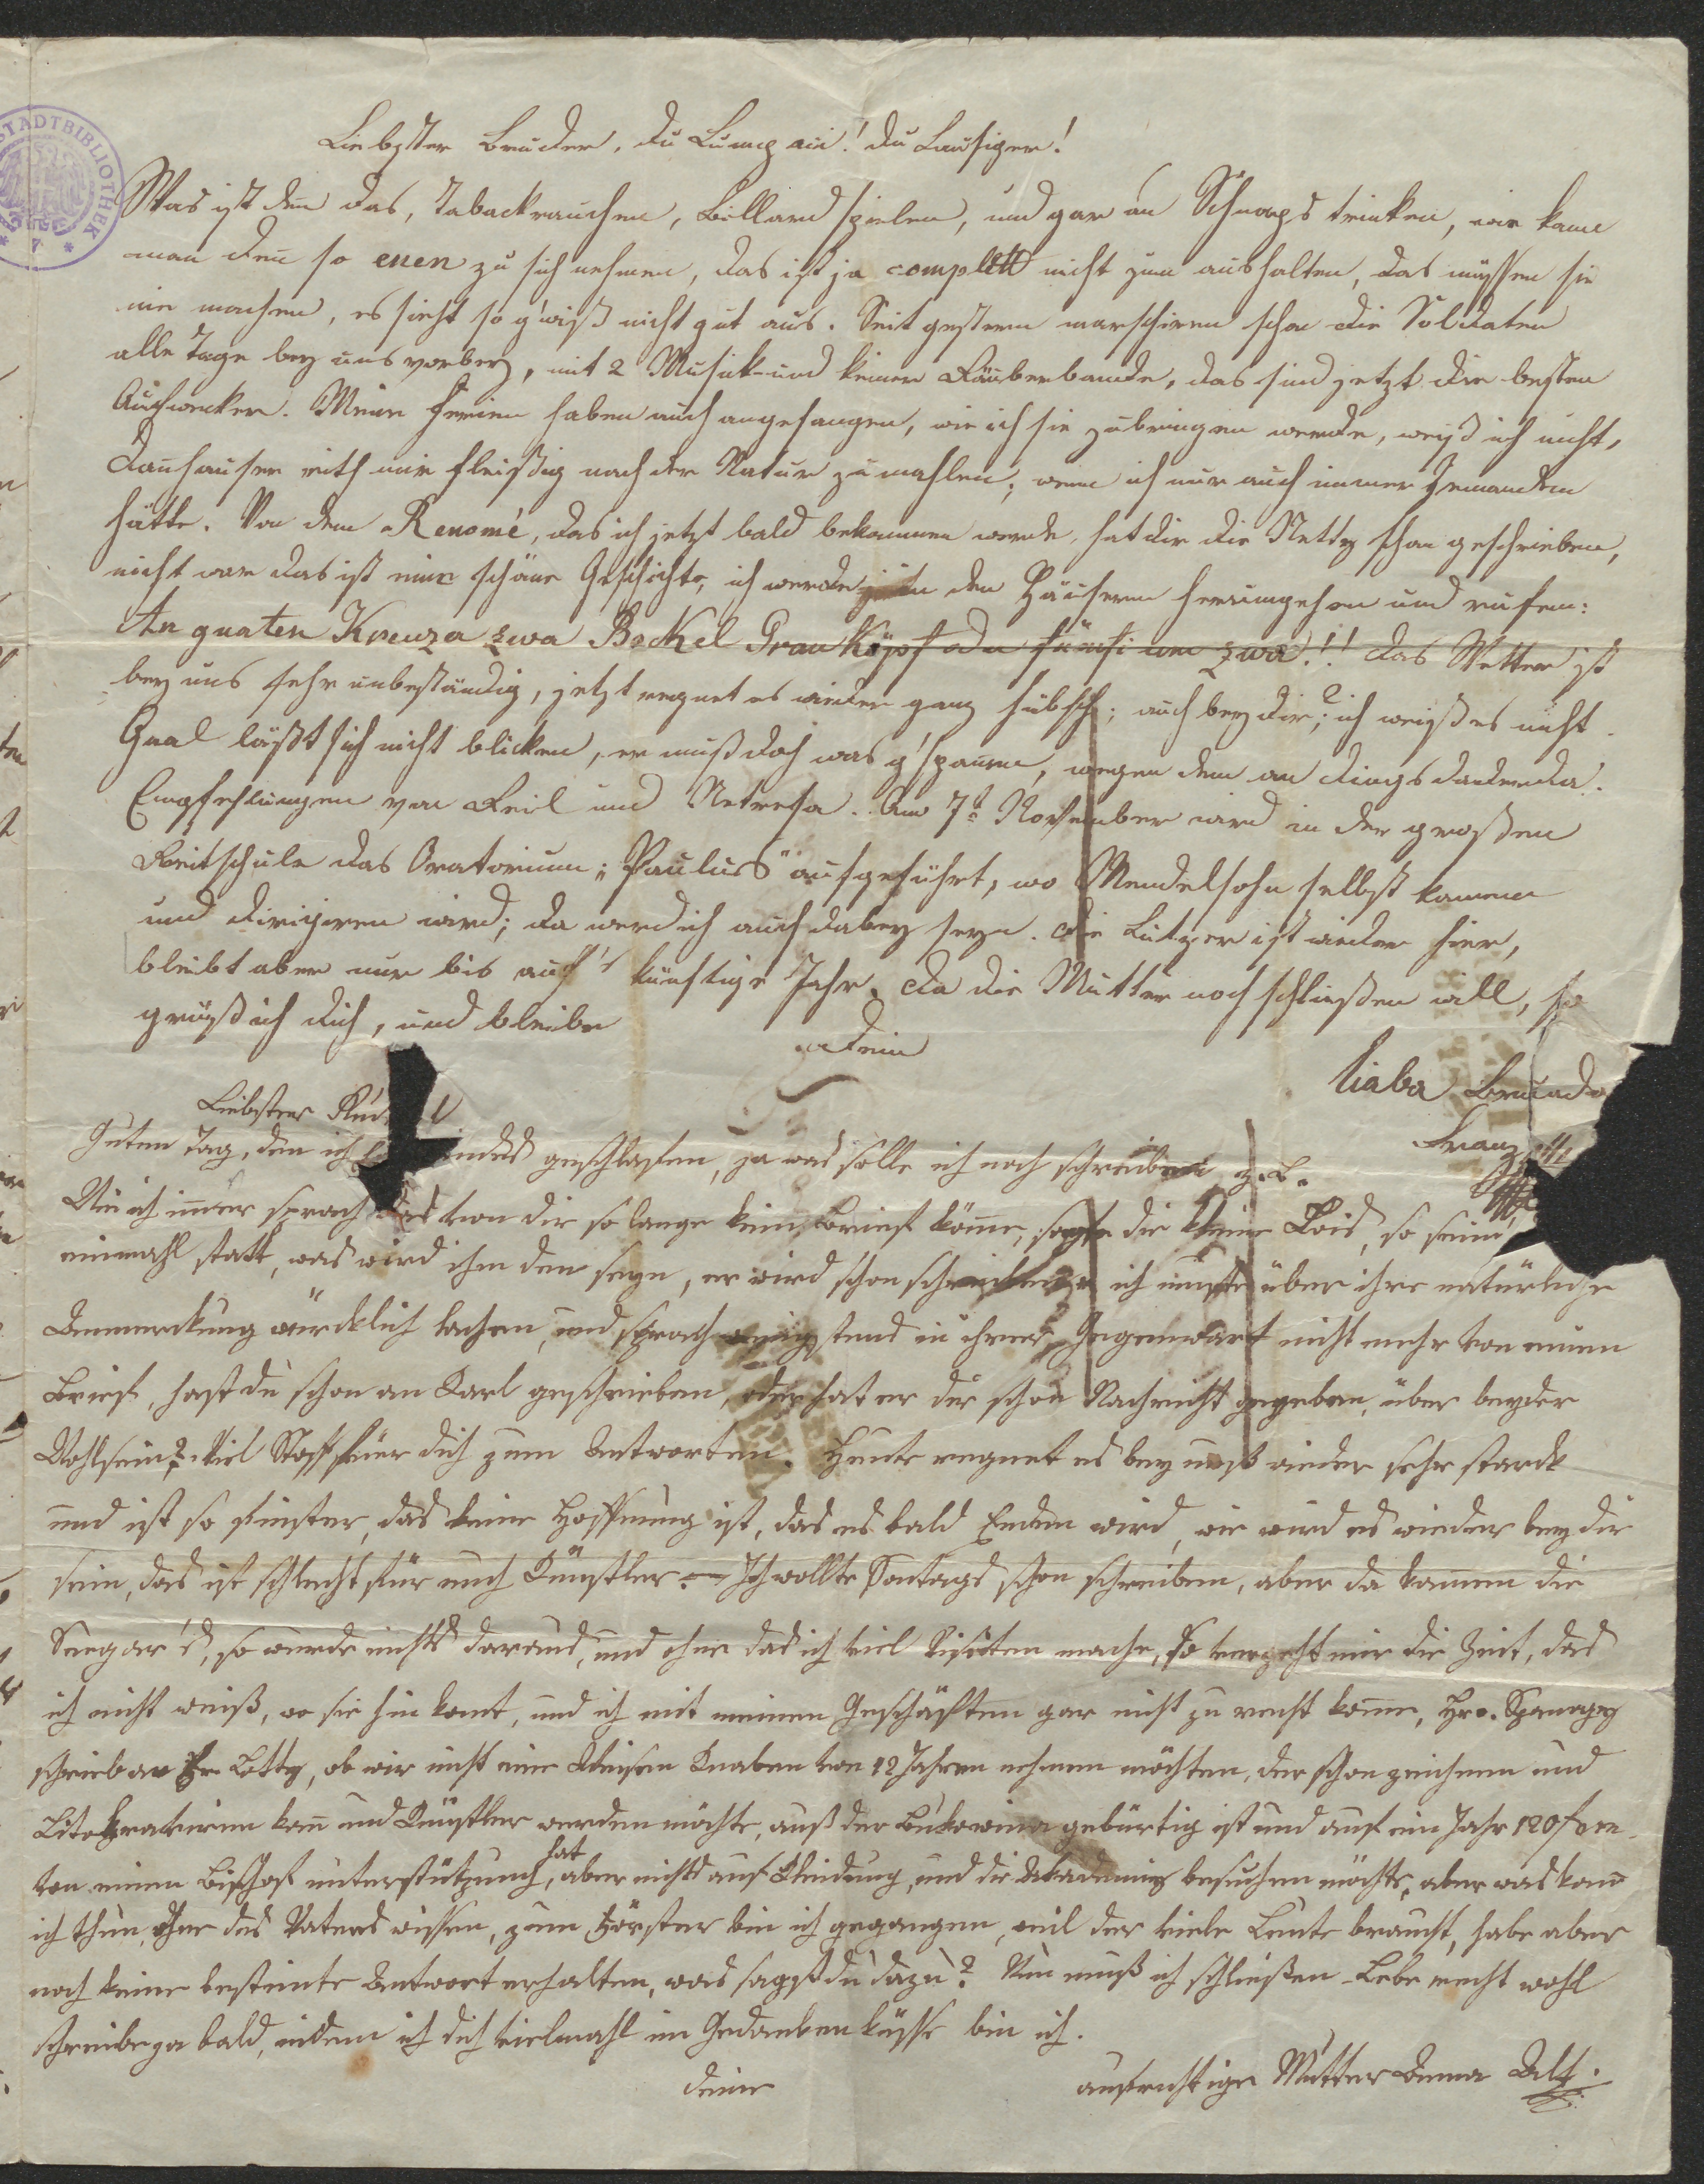 STADTBIBLIOTHEK
Liebster Bruder, du Lumpaci! du Lausiger!
Was ist den̄ das, Tabackrauchen, Billard spielen, und gar an Schnaps trinken, wie kann
man den̄ so enen zu sich nehmen, das ist ja complett nicht zum aushalten, das müssen sie
nie machen, es sieht so g'wiß nicht gut aus. Seit gestern marschiren schon die Soldaten
alle Tage bey uns vorbey, mit 2 Musik- und keiner Räuberbande, das sind jetzt die besten
Aufwecker. Meine Ferien haben auch angefangen, wie ich sie zubringen werde, weiß ich nicht,
Danhauser rith mir fleißig nach der Natur zu mahlen; wenn ich nur auch immer Jemanden
hätte. Von dem Renomé, das ich jetzt bald bekommen werde, hat dir die Netty schon geschrieben,
nicht war das ist eine schöne Geschichte, ich werde in den Häusern herumgehen und rufen:
An guaten Kreuza zwa Bockel Grauköpf oda fünfi um zwa!! das Wetter ist
bey uns sehr unbeständig, jetzt regnet es wieder ganz hübsch; auch bey dir?; ich weiß es nicht.
Gaal läßt sich nicht blicken, er muß doch was g'spannen, wegen dem an dings dadenda.
Empfehlungen von Reil und Netresa. Am 7t November wird in der großen
Reitschule das Oratorium: „Paulus" aufgeführt, wo Mendelsohn selbst kommen
und dirigiren wird; da werd ich auch dabey seyn. die Lutzer ist wieder hier,
bleibt aber nur bis auf's künftige Jahr. da die Mutter noch schließen will, so
grüß ich dich, und bleibe
dein
liaba Bruada
Franz
Liebster
Guten Tag, den ich geschlafen, ja was solle ich noch schreiben z. B.
Wie ich im̄er sprach das von dir so lange kein Brief köme, sagte die kleine Lois, so
einmahl statt, was wird ihm den seyn, er wird schon schreiben ich muste über ihre natürliche
Anmerckung würcklich lachen, und sprach wenigstens in ihrer Gegenwart nicht mehr von einen
Brief, hast du schon an Karl geschrieben, oder hat er dir schon Nachricht gegeben, über beyder
Wohlsein? Viel Stoff für dich zum Antworten. Heute regnet es bey unß wieder sehr starck
und ist so finster, das keine Hoffnung ist, das es bald Enden wird, wie wird es wieder bey dir
sein, das ist schlecht für euch Künstler. — Ich wollte Sontags schon schreiben, aber da kamen die
so wurde nichts daraus, und ohne das ich viel Visitten mache, so vergeht mir die Zeit, das
ich nicht weiß, wo sie hin komt, und ich mit meinen Geschäften gar nicht zu recht kome, Hr.
schrieb an Lotty, ob wir nicht eine Waisen Knaben von 12 Jahren nehmen möchten, der schon zeichnen und
kan̄ und Künstler werden möchte, auß der Bukowina gebürtig ist und auf ein Jahr 120f
von einen Bischof unterstützung hat, aber nichts auf Kleidung, und die Akademie besuchen möchte, aber was kan̄
ich thun, ohne des Vaters wissen, zum Förster bin ich gegangen, weil der viele Leute braucht, habe aber
noch keine bestimte Antwort erhalten, was sagst du dazu? Nun muß ich schließen Lebe recht wohl
schreibe ja bald, indem ich dich vielmahl im Gedanken küsse bin ich.
deine
aufrichtige Mutter Anna Alt.